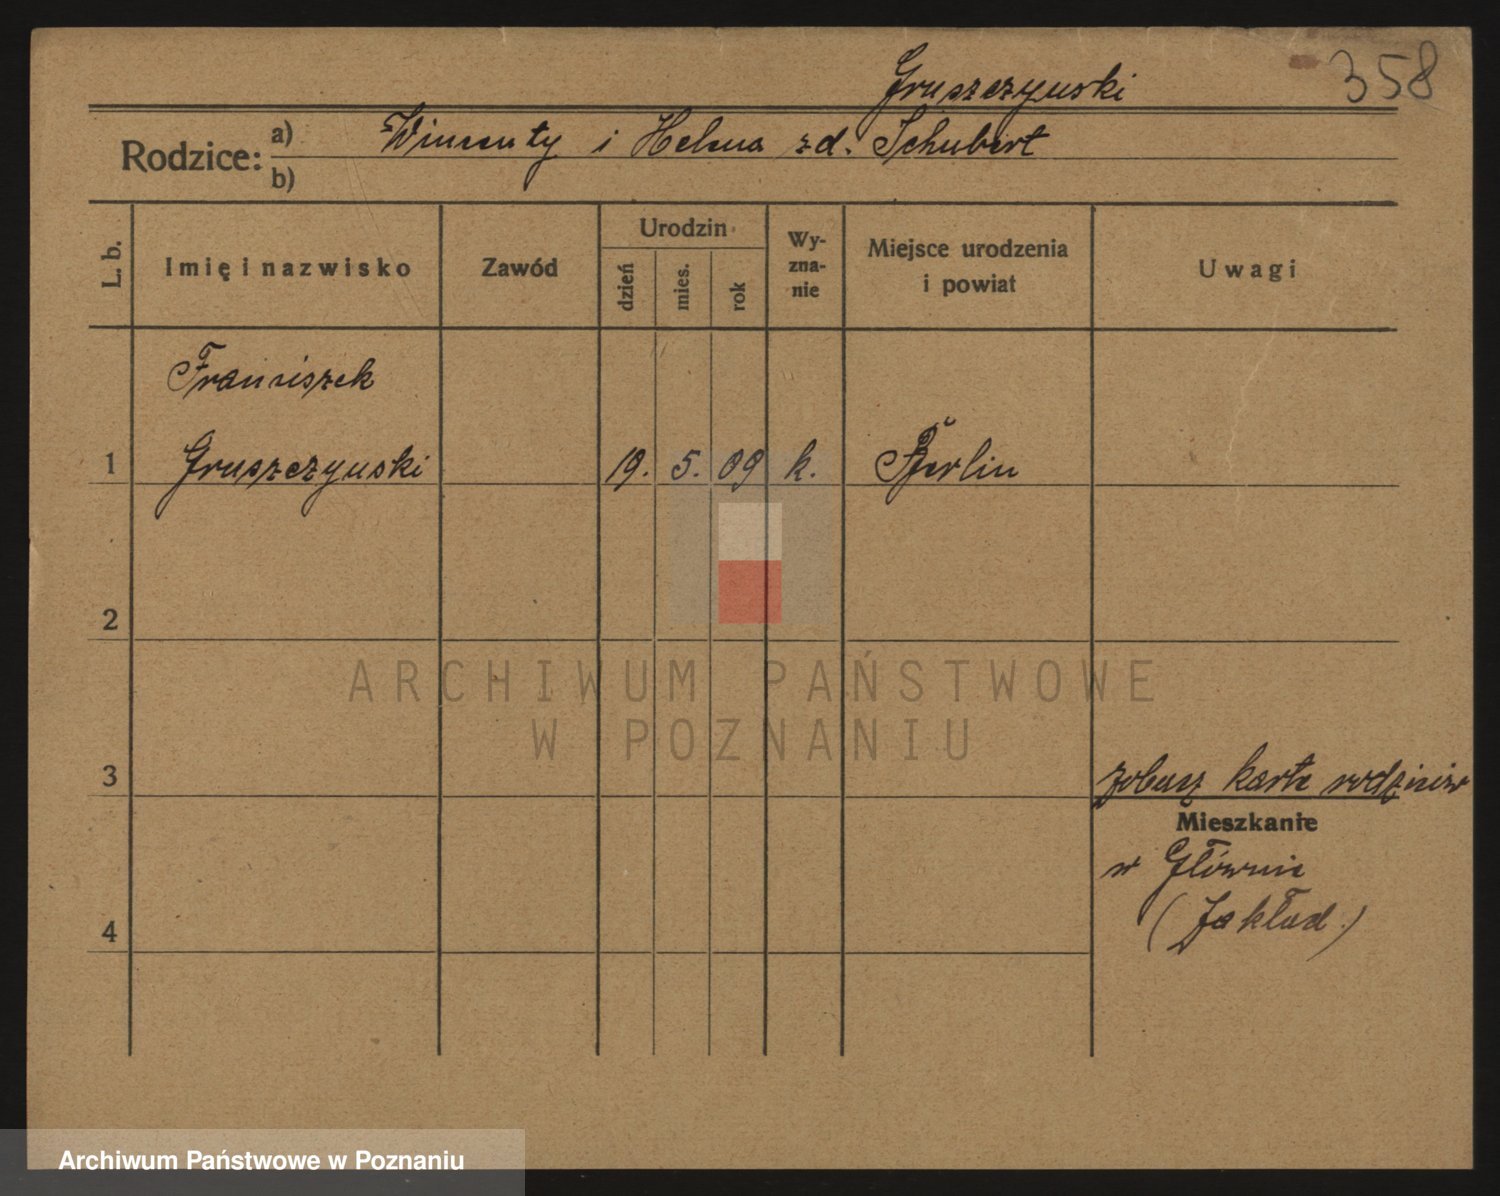 Gruszczynski 358
Rodzice: a) Wincenty i Helena zd. Schubert
b)
L. b. Imię i nazwisko Zawód Urodzin dzień mies. rok Wy-zna-nie Miejsce urodzenia i powiat Uwagi
Franciszek
1 Gruszczynski 19. 5. 09 k. Berlin
2
ARCHIWUM PAŃSTWOWE
W POZNANIU
3 zobacz karte rodziców
Mieszkanie
w Głównie
4 (Zakład.)
Archiwum Państwowe w Poznaniu